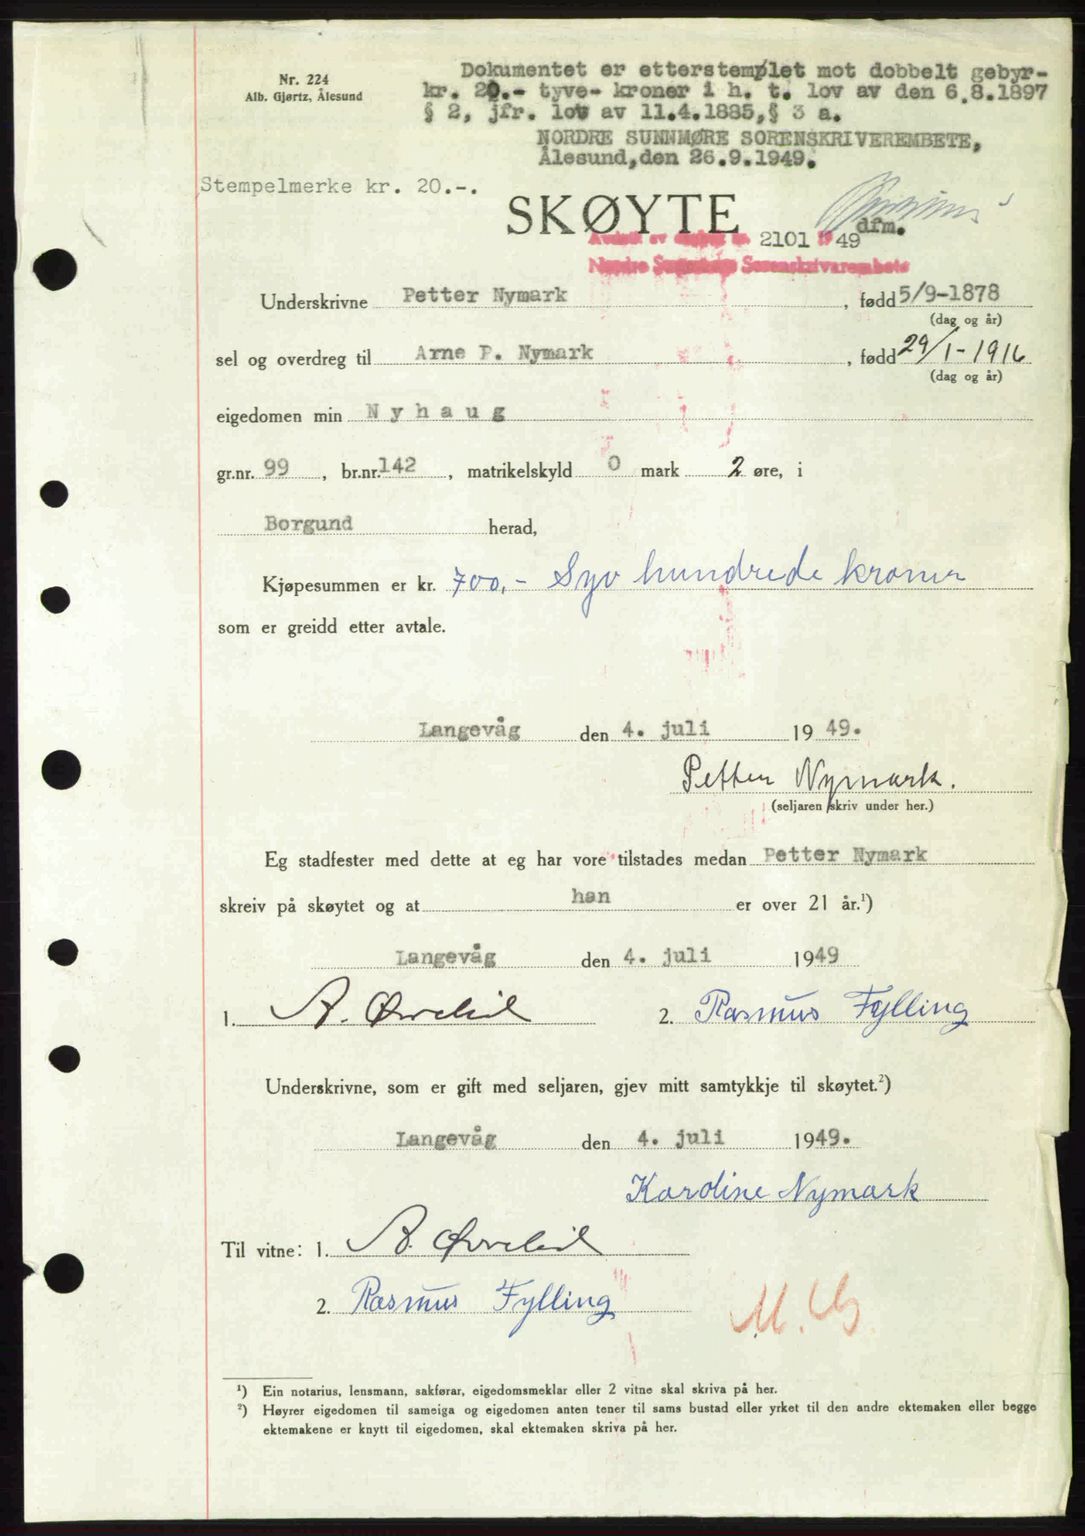 Nr. 224
Alb. Gjørtz, Ålesund
Dokumentet er etterstemplet mot dobbelt gebyr-
kr. 20.- tyve- kroner i h. t. lov av den 6.8.1897
§ 2, jfr. lov av 11.4.1885,§ 3 a.
NORDRE SUNNMØRE SORENSKRIVEREMBETE,
Ålesund,den 26.9.1949.
Stempelmerke kr. 20.-.
SKØYTE
dfm.
2101 1949
Nordre Sunnmøre Sorenskrivarembete
Underskrivne Petter Nymark, fødd 5/9-1878
(dag og år)
sel og overdreg til Arne P. Nymark, fødd 29/1-1916
(dag og år)
eigedomen min Nyhaug
gr.nr. 99, br.nr. 142, matrikelskyld 0 mark 2 øre, i
Borgund herad,
Kjøpesummen er kr. 700,- Syv hundrede kroner
som er greidd etter avtale.
Langevåg den 4. juli 1949.
Petter Nymark.
(seljaren skriv under her.)
Eg stadfester med dette at eg har vore tilstades medan Petter Nymark
skreiv på skøytet og at han er over 21 år.¹)
Langevåg den 4. juli 1949
1. A. 2. Rasmus Fylling
Underskrivne, som er gift med seljaren, gjev mitt samtykkje til skøytet.²)
Langevåg den 4. juli 1949.
Karoline Nymark
Til vitne: 1. A.
2. Rasmus Fylling
¹) Ein notarius, lensmann, sakførar, eigedomsmeklar eller 2 vitne skal skriva på her.
²) Høyrer eigedomen til sameiga og eigedomen anten tener til sams bustad eller yrket til den andre ektemaken eller begge
ektemakene er knytt til eigedomen, skal ektemaken skriva på her.